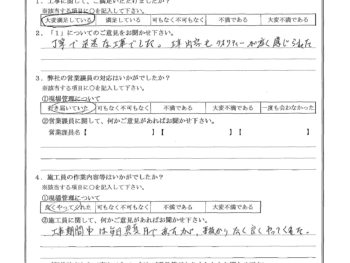 1. 工事に関し、ご満足いただけましたか？
※該当する項目に○を記入して下さい。
大変満足している 満足している 可もなく不可もなく 不満である 大変不満である
2. 「1」についてのご意見をお聞かせ下さい。
丁寧で迅速な工事でした。
3. 弊社の営業課員の対応はいかがでしたか？
※該当する項目に○を記入して下さい。
①現場管理について
行き届いていた 可もなく不可もなく 不満である 大変不満である 一度も会わなかった
②営業課員に関して、何かご意見があればお聞かせ下さい。
営業課員名 【 】 【 】 【 】
4. 施工員の作業内容等はいかがでしたか？
※該当する項目に○を記入して下さい。
①現場管理について
良くやってくれた 可もなく不可もなく 不満である 大変不満である
②施工員に関して、何かご意見があればお聞かせ下さい。
工事期間中は毎日 良くやってくれました。